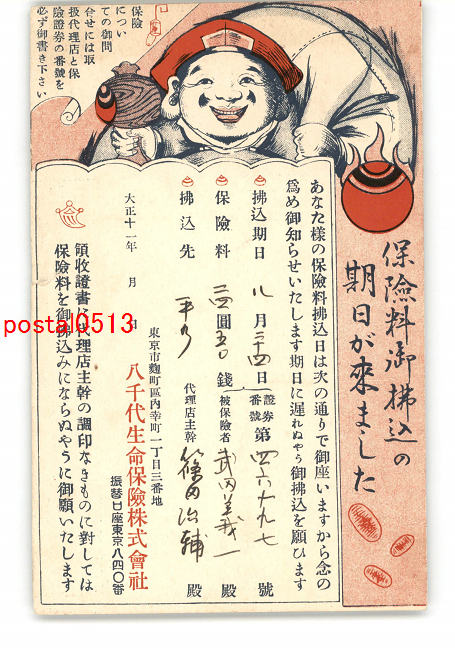 保險料御拂込の
期日が來ました
保險
につい
ての御問
合せには取
扱代理店と保
險證券の番號を
必ず御書き下さい
あなた樣の保險料拂込日は次の通りで御座いますから念の
爲め御知らせいたします期日に遲れぬやう御拂込を願ひます
拂込期日 八月二十四日 證券番號 第四六十九七號
保險料 圓五〇錢 被保險者 武内義一殿
拂込先 代理店主幹 篠田治輔殿
大正十一年 月 日
東京市麴町區内幸町一丁目三番地
八千代生命保險株式會社
振替口座東京八四〇番
領收證書に代理店主幹の調印なきものに對しては
保險料を御拂込みにならぬやうに御願いたします
postal0513